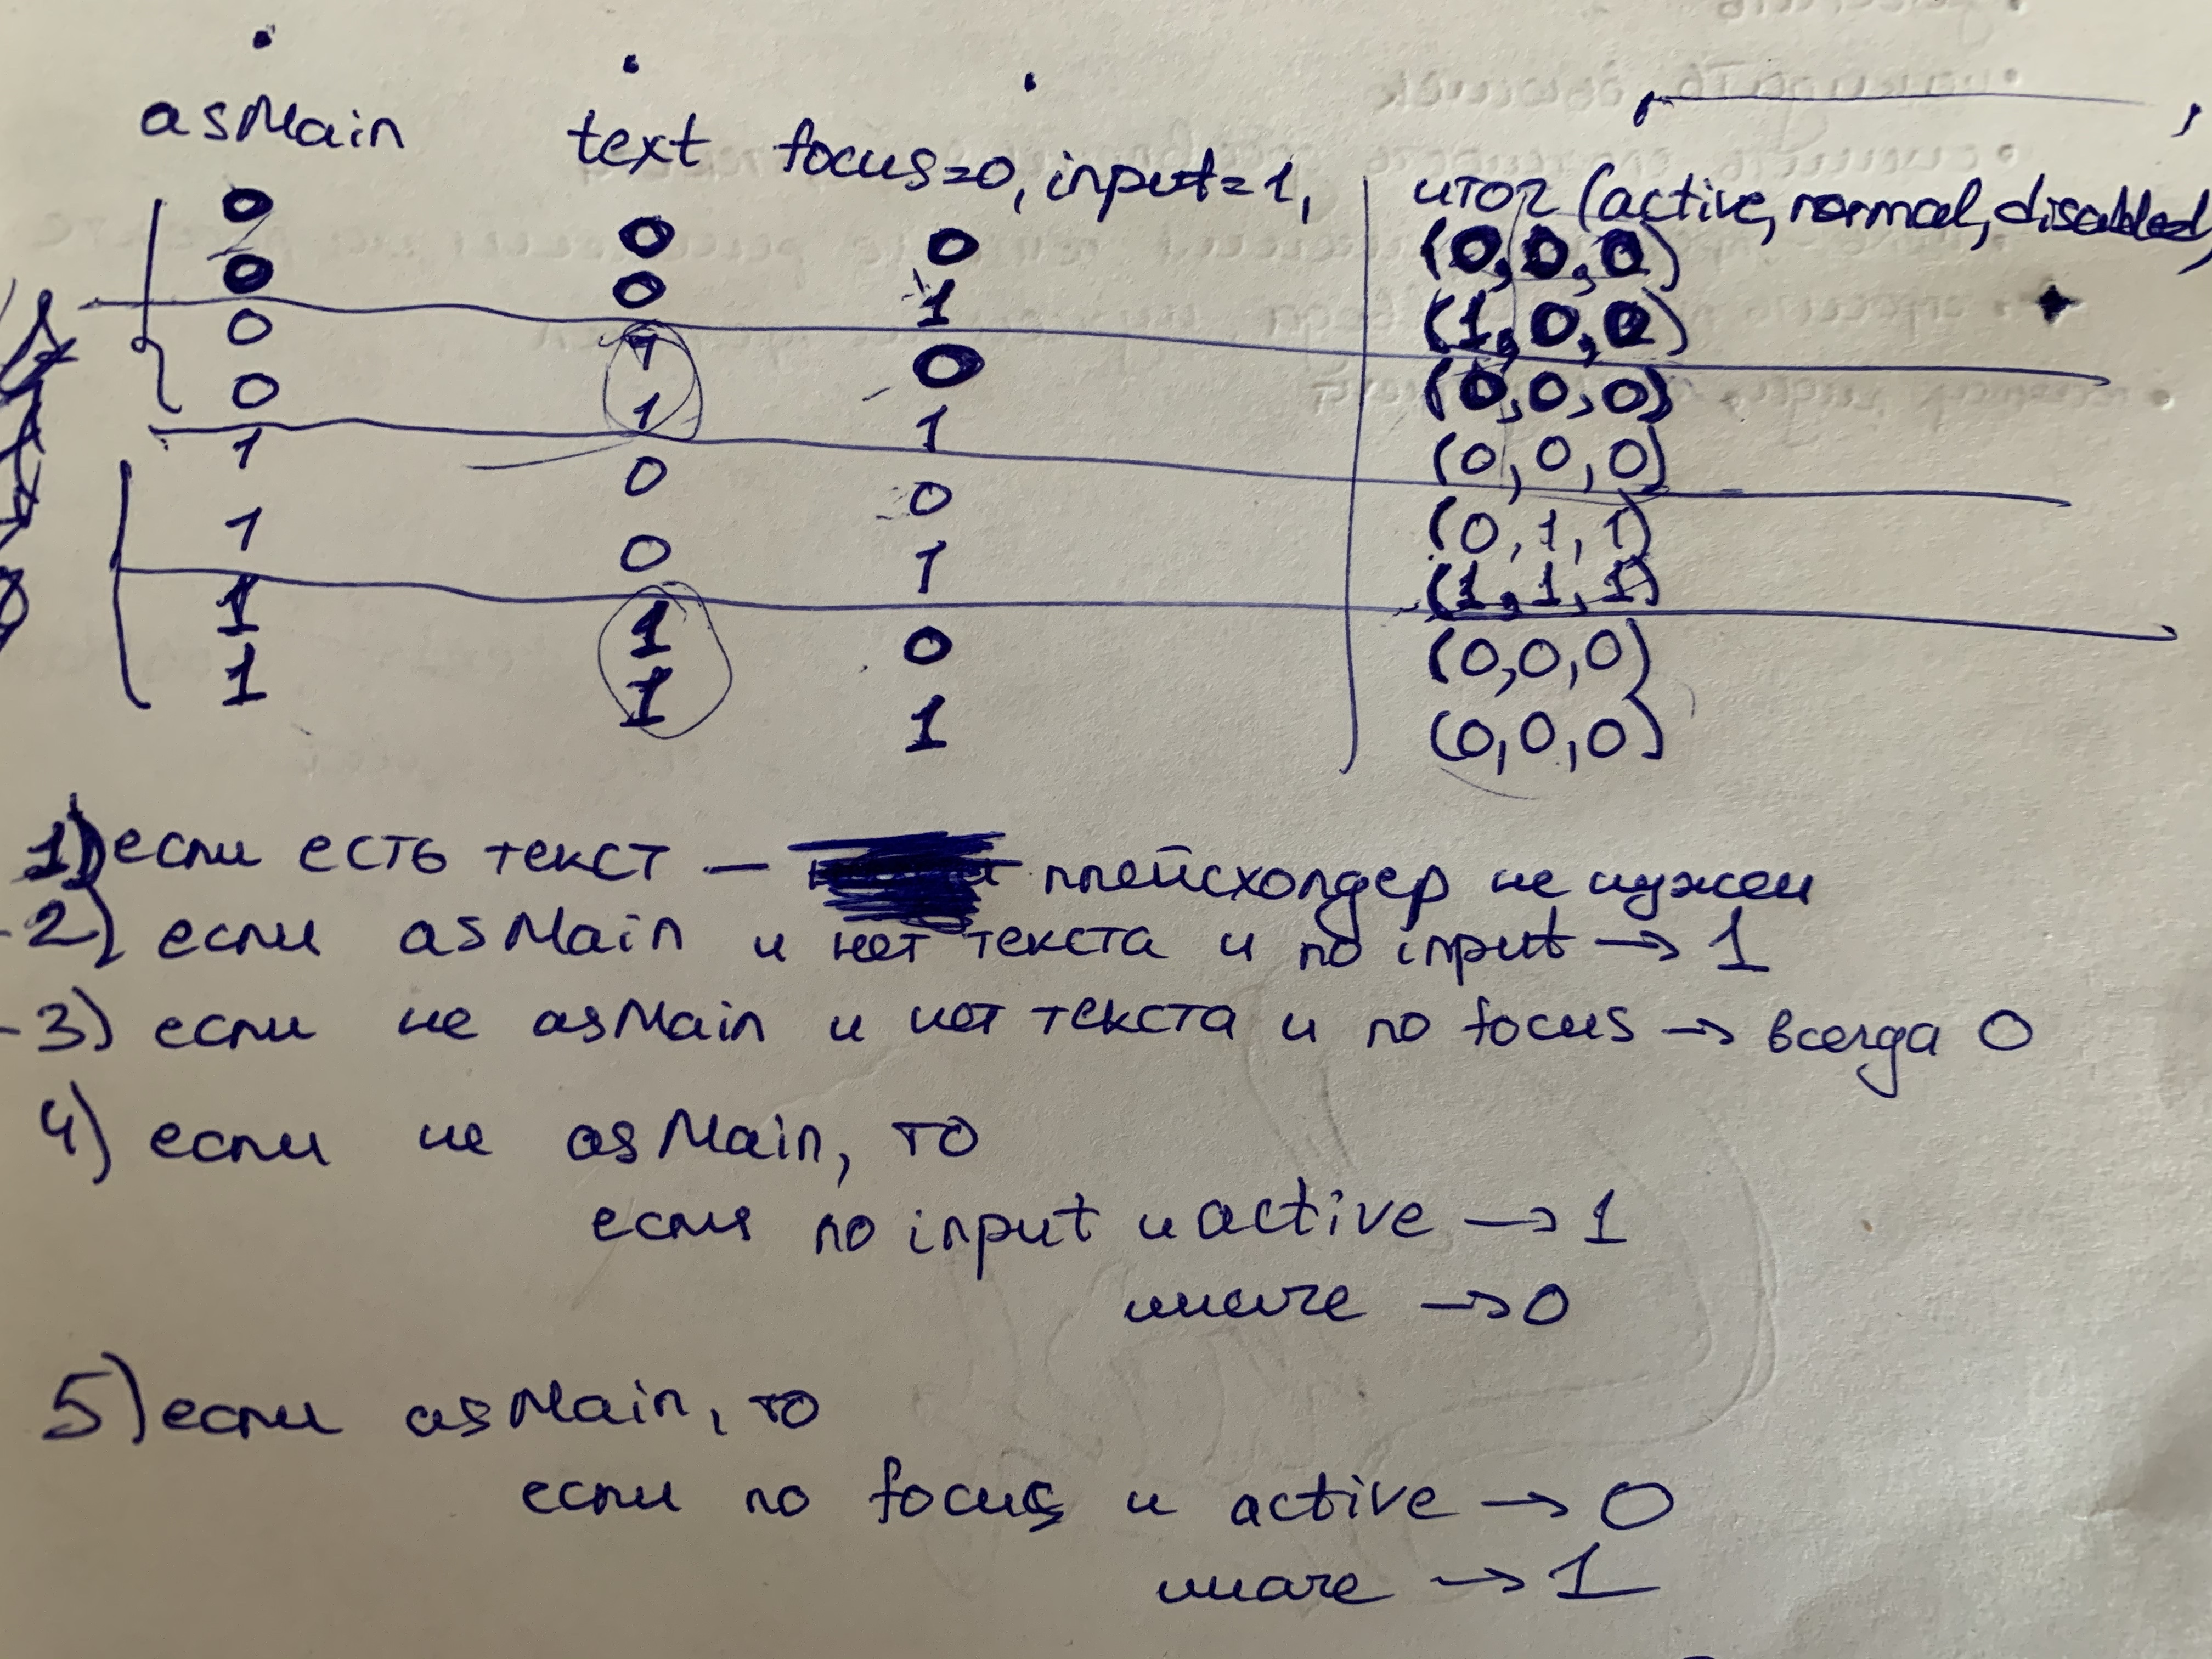 asMain text focus=0, input=1, итог (active, normal, disabled)
0 0 0 (0,0,0)
0 0 1 (1,0,0)
0 1 0 (0,0,0)
0 1 1 (0,0,0)
1 0 0 (0,1,1)
1 0 1 (1,1,1)
1 1 0 (0,0,0)
1 1 1 (0,0,0)
1) если есть текст — плейсхолдер не нужен
2) если asMain и нет текста и по input → 1
3) если не asMain и нет текста и по focus → всегда 0
4) если не asMain, то
если по input и active → 1
иначе → 0
5) если asMain, то
если по focus и active → 0
иначе → 1